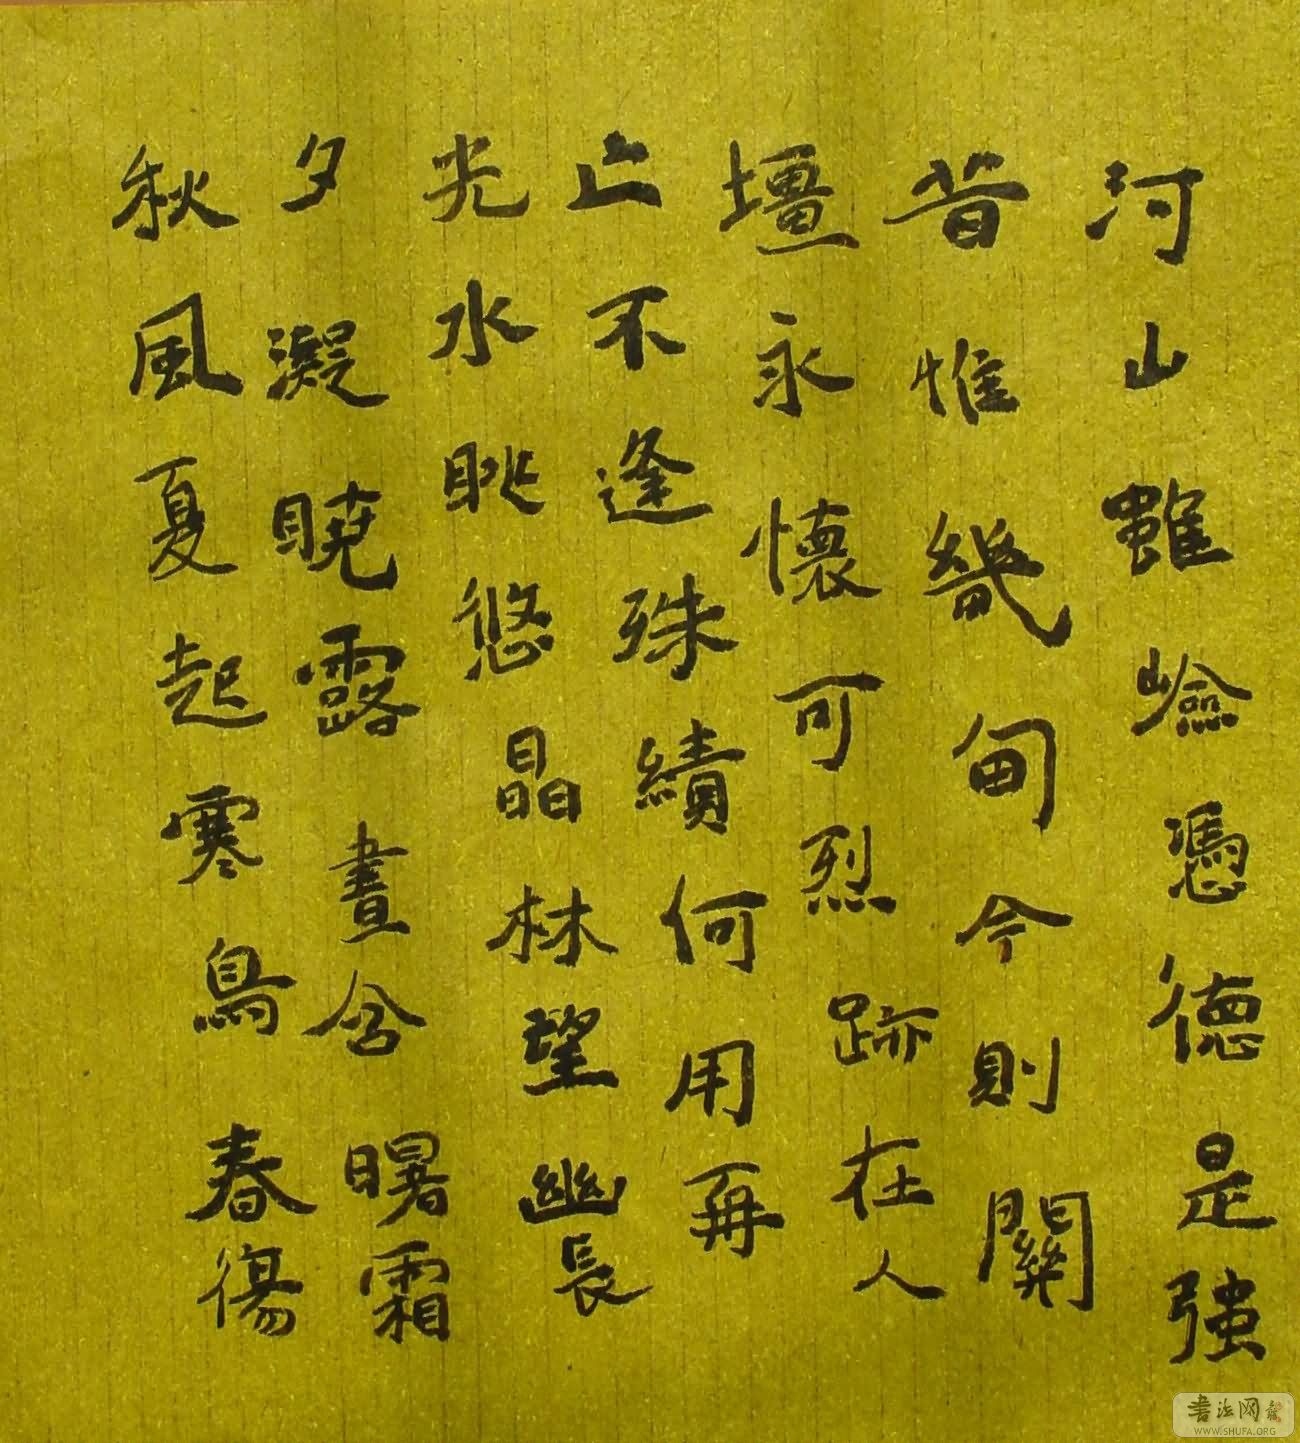 河山雖嶮憑德是強
昔惟畿甸今則關
壃永懷可烈跡在人
亡不逢殊績何用再
光水眺悠晶林望幽長
夕凝曉露晝含曙霜
秋風夏起寒鳥春傷
書法网
WWW.SHUFA.ORG